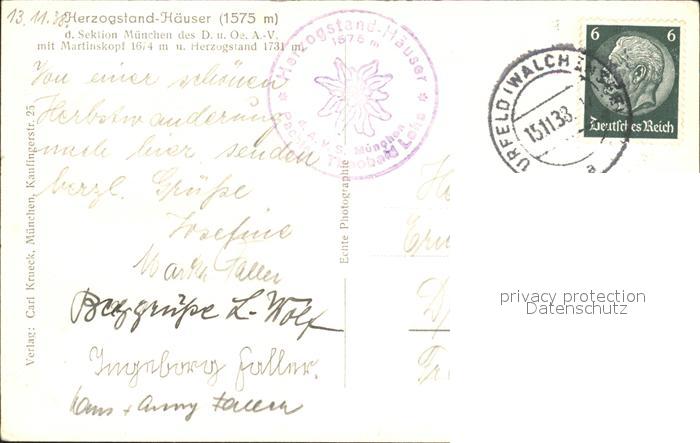 13.11.38.
Herzogstand-Häuser (1575 m)
d. Sektion München des D. u. Oe. A.-V.
mit Martinskopf 1674 m u. Herzogstand 1731 m
Von einer schönen
Herbstwanderung
nach hier senden
herzl. Grüße
Josefine
Martha Faller
Berggrüße L. Wolf
Ingeborg Faller.
Hans + Anny Faller
Verlag: Carl Krueck, München, Kaufingerstr. 25
Echte Photographie
Herzogstand-Häuser
1575 m
d. A.V.S. München
Pächter Theobald Leis
URFELD (WALCHENSEE)
15.11.38
a
6 6
Deutsches Reich
privacy protection
Datenschutz